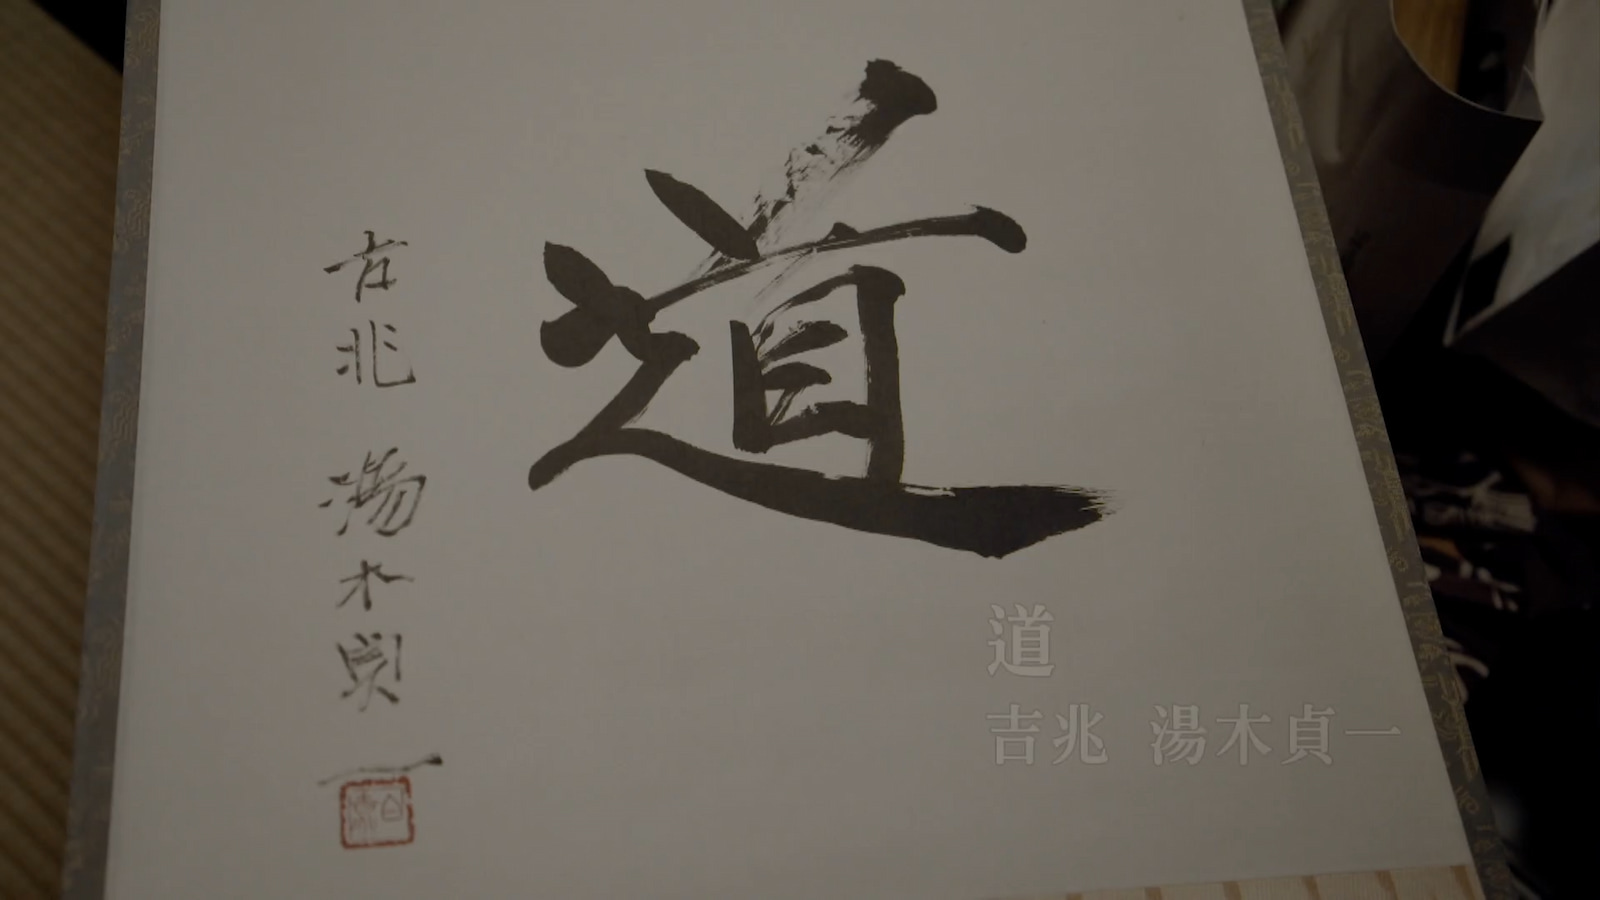 道
吉兆 湯木貞一
道
吉兆 湯木貞一